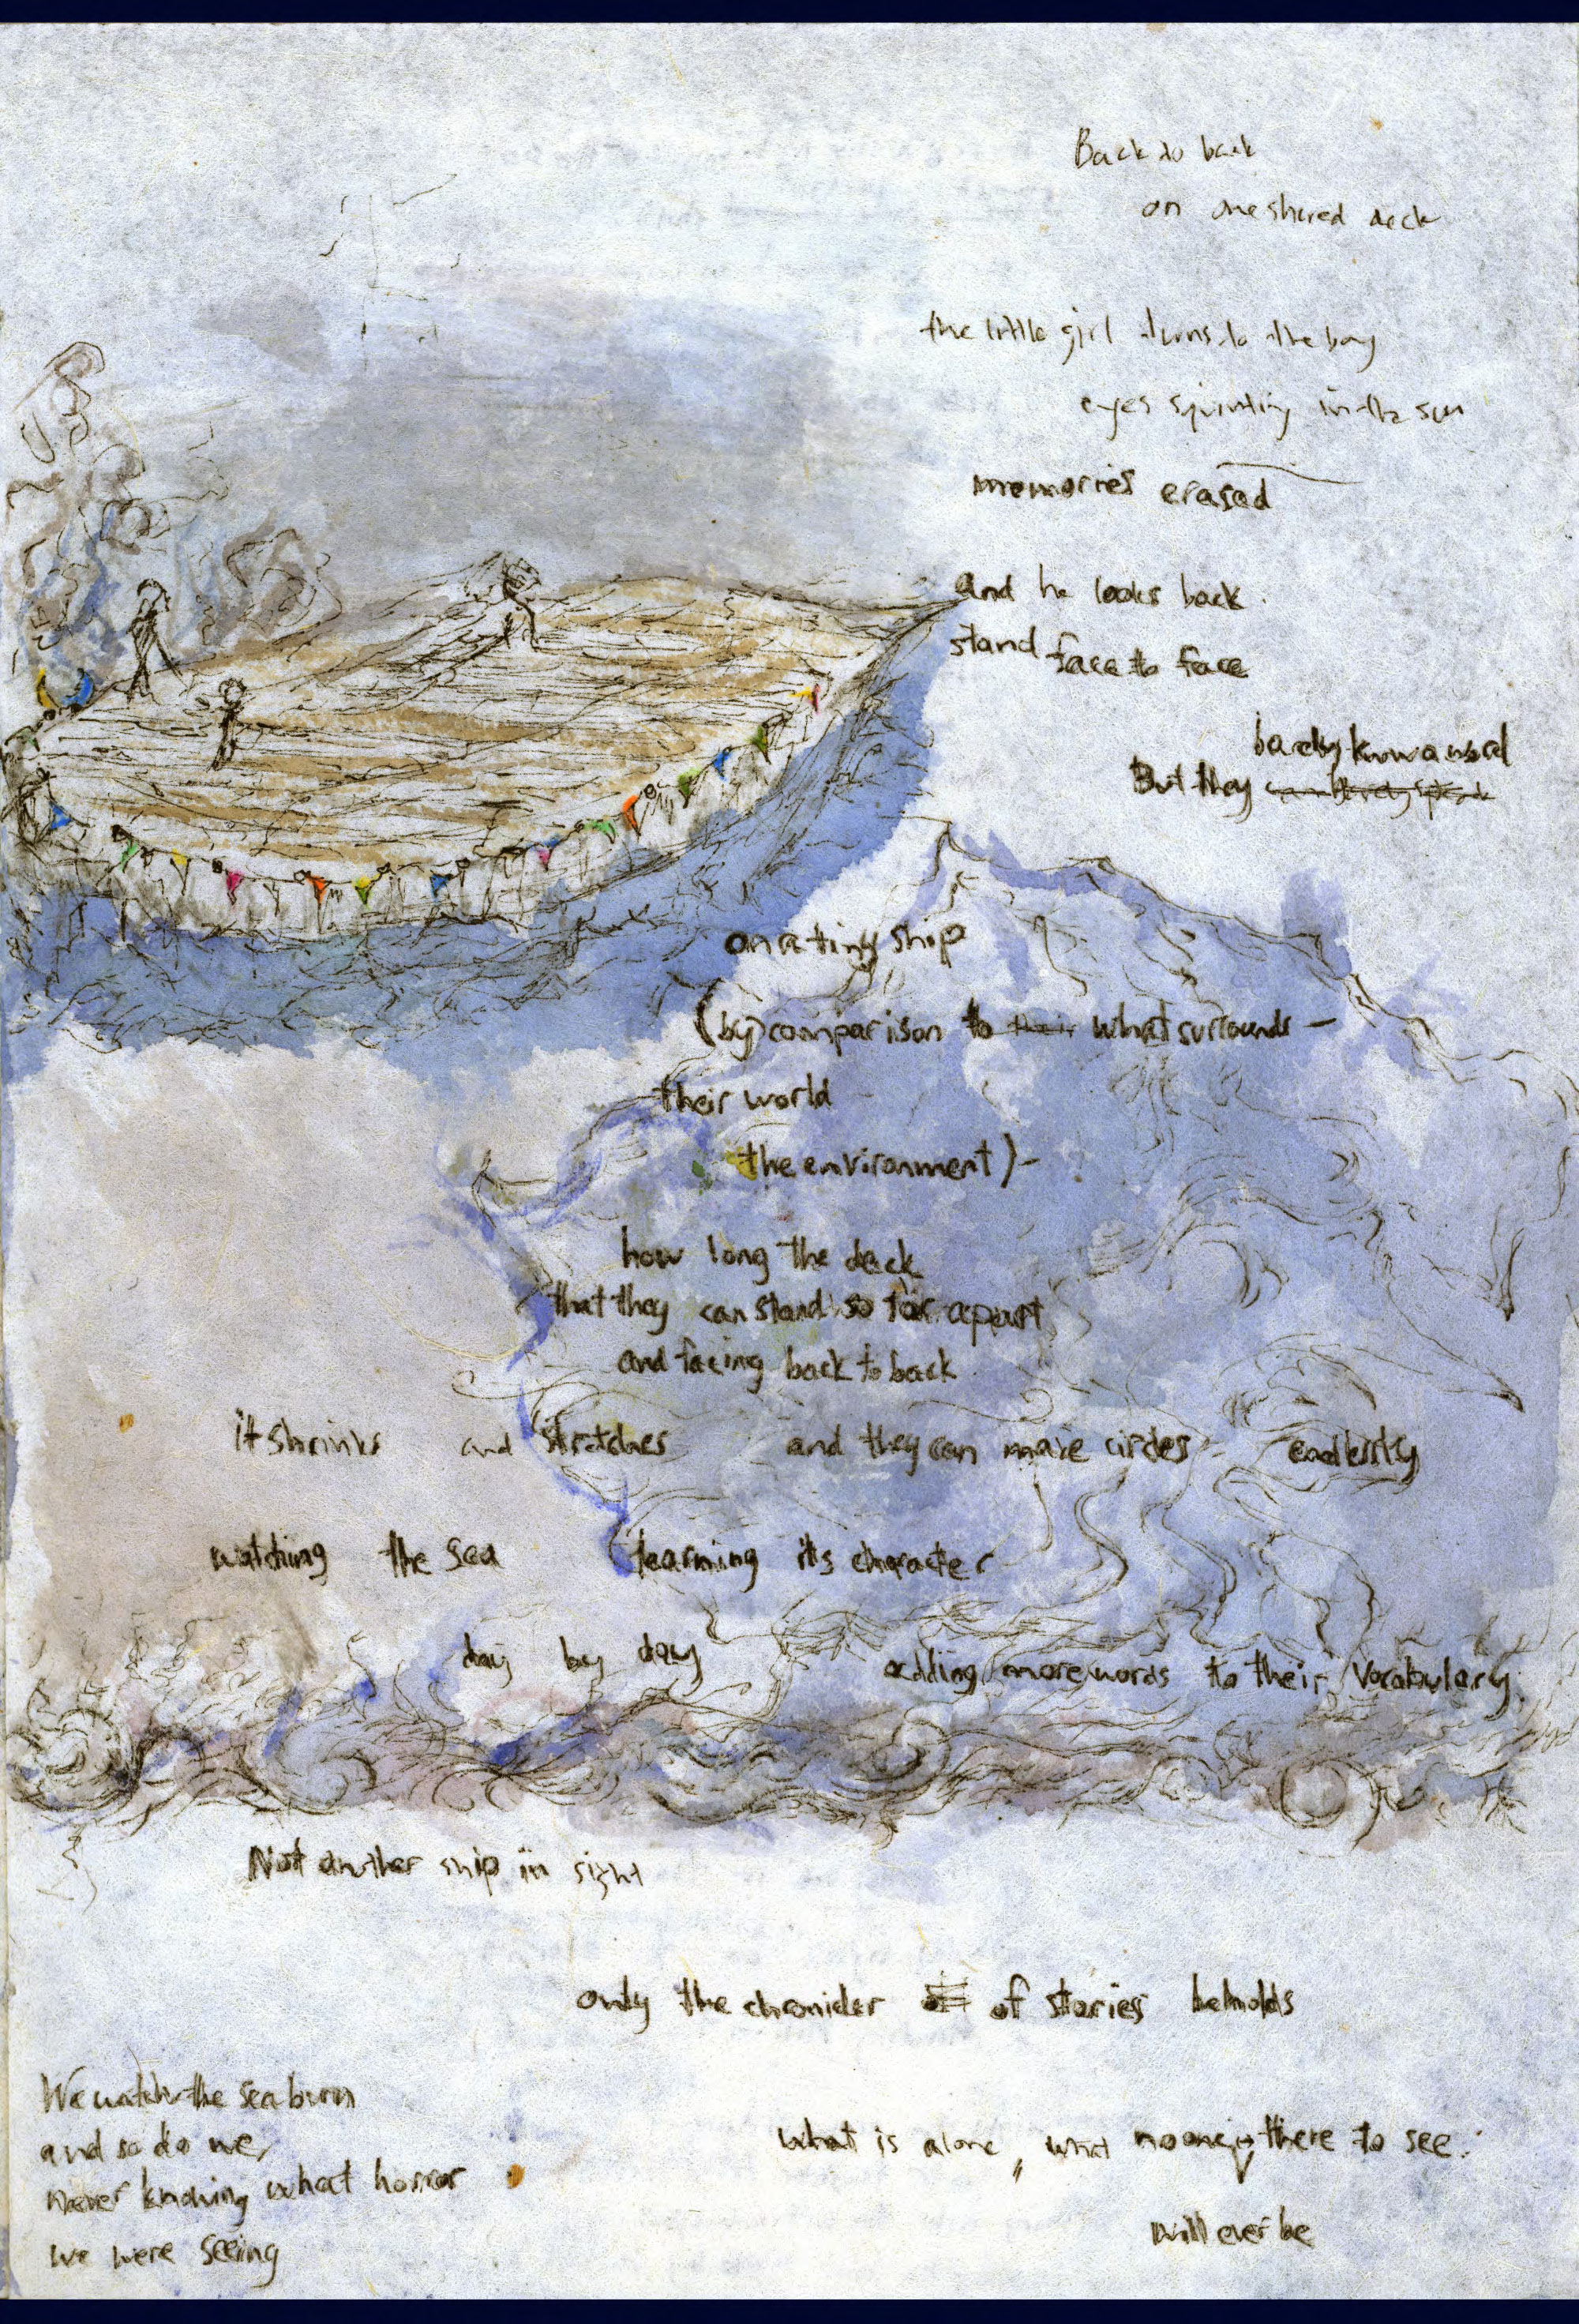 Back to back
on one shared deck
the little girl turns to the boy
eyes squinting in the sun
memories erased
and he looks back
stand face to face
barely know a word
But they
on a tiny ship
(by) comparison to their what surrounds -
their world
the environment) -
how long the deck
that they can stand so far apart
and facing back to back
it shrinks and stretches and they can make circles endlessly
watching the sea learning its character
day by day adding more words to their vocabulary.
Not another ship in sight
only the chronicler of stories beholds
We watch the sea burn
and so do we,
never knowing what horror
we were seeing
What is alone, what no one is there to see.
will ever be